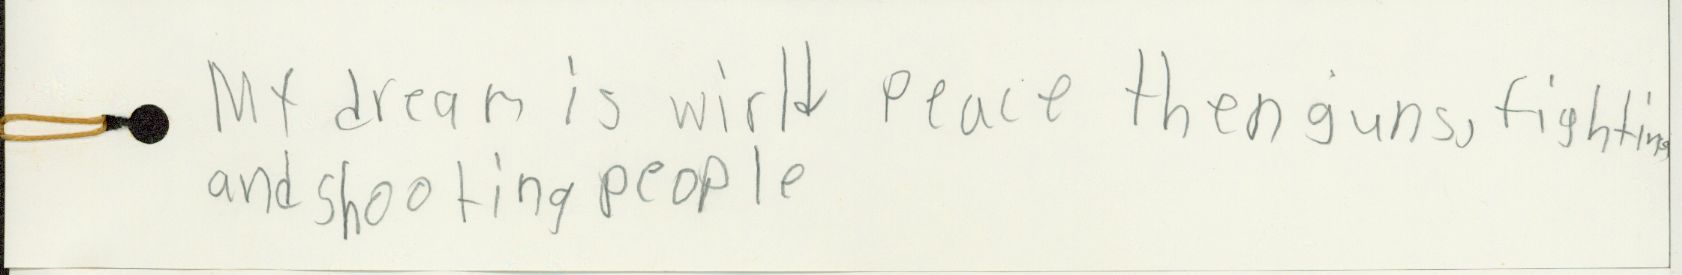 My dream is wirld peace then guns, fighting
and shooting people